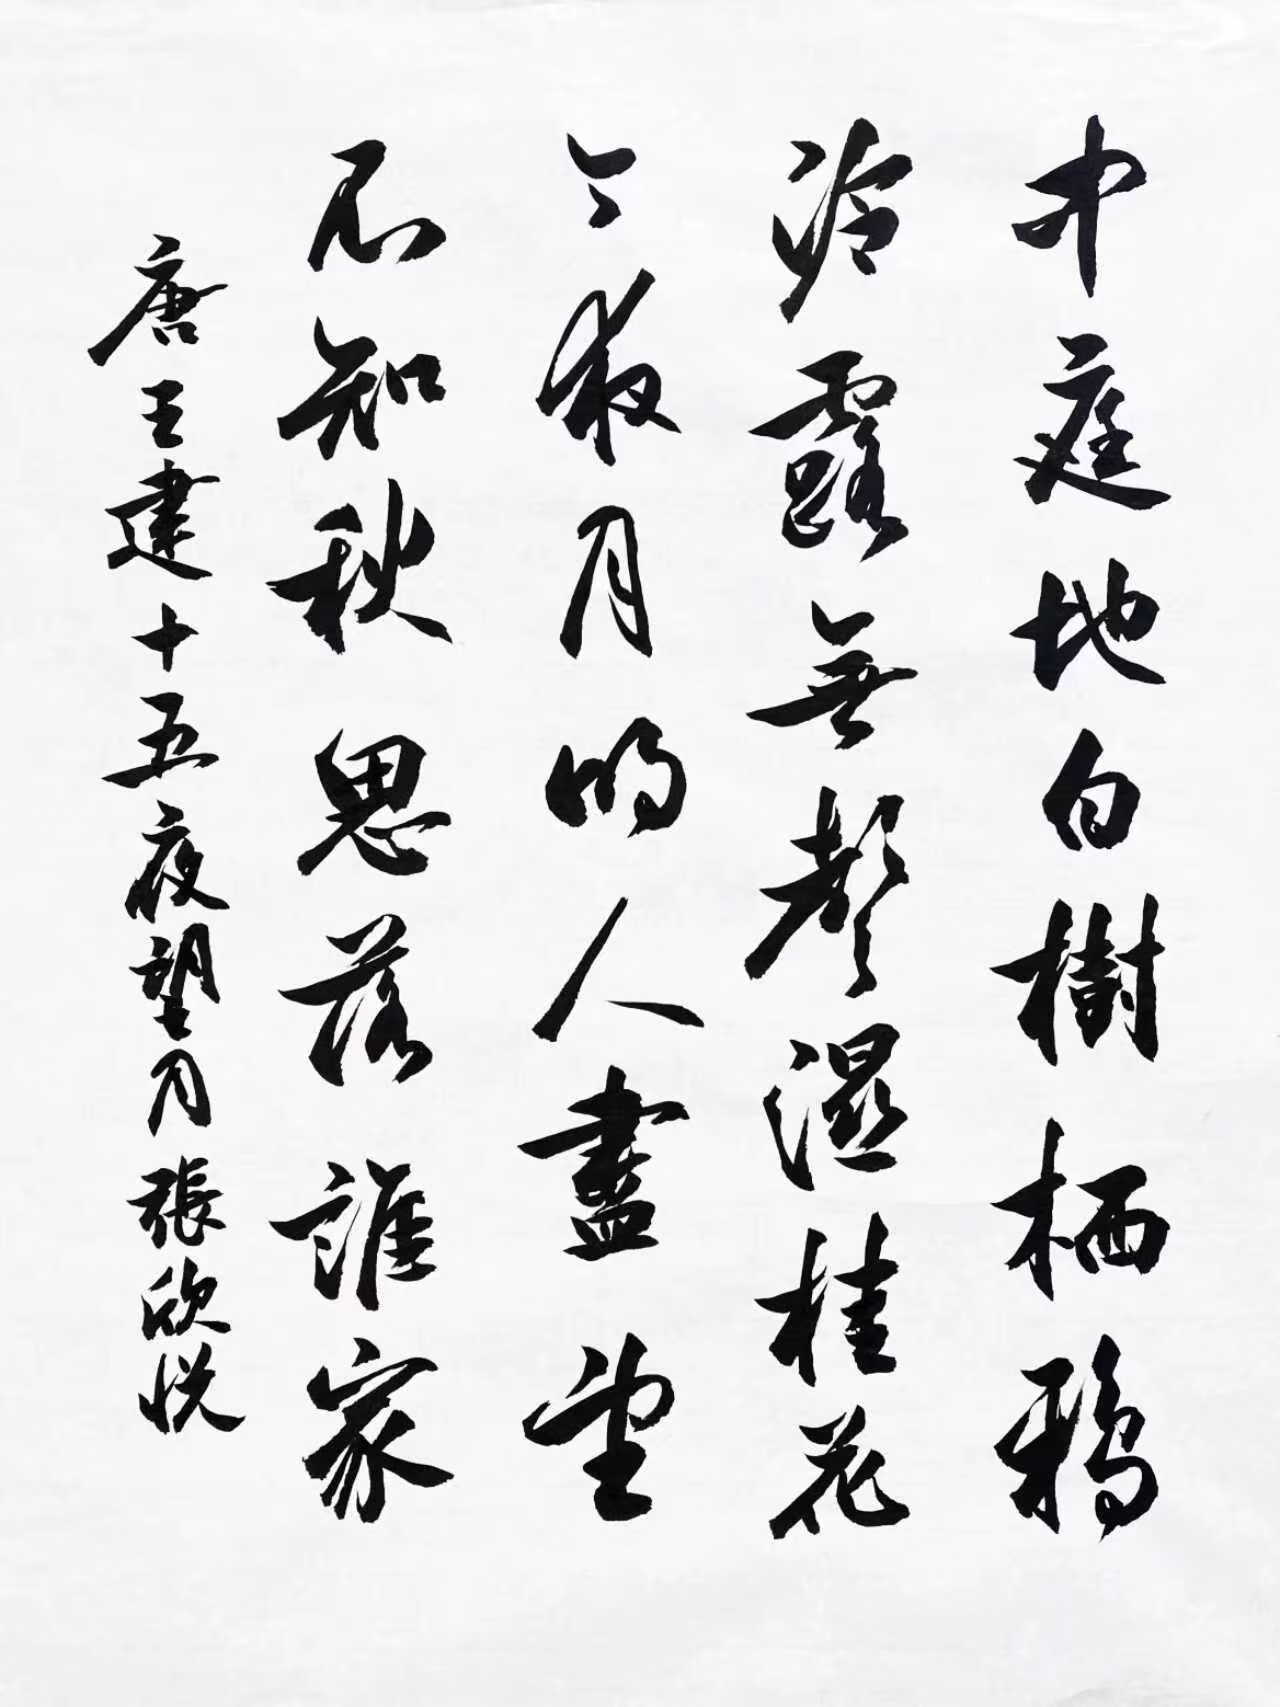 中庭地白樹栖鴉
冷露無聲濕桂花
今夜月明人盡望
不知秋思落誰家
唐王建十五夜望月張欣悦